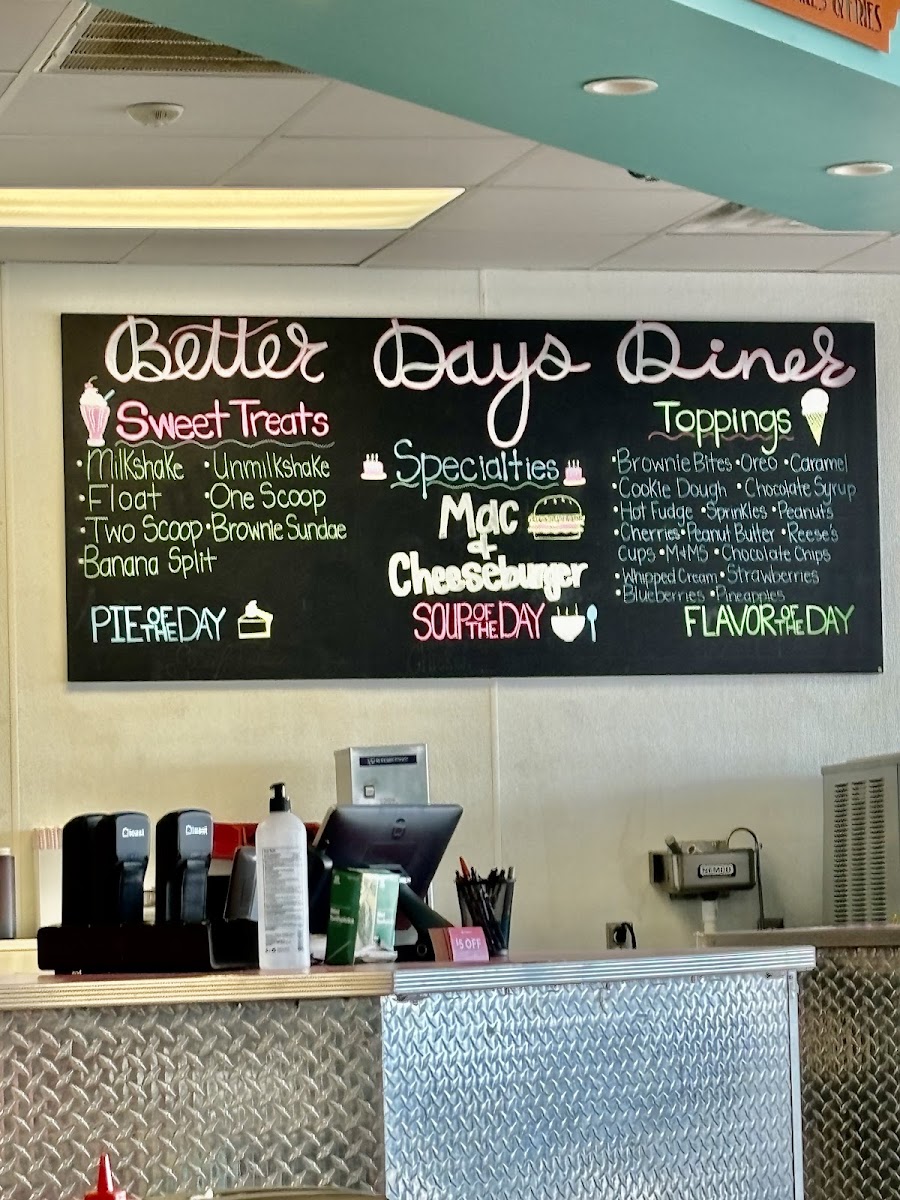 & FRIES
Better Days Diner
Sweet Treats
• Milkshake • Unmilkshake
• Float • One Scoop
• Two Scoop • Brownie Sundae
• Banana Split
PIE OF THE DAY
Specialties
Mac
&
Cheeseburger
SOUP OF THE DAY
Toppings
• Brownie Bites • Oreo • Caramel
• Cookie Dough • Chocolate Syrup
• Hot Fudge • Sprinkles • Peanuts
• Cherries • Peanut Butter • Reese's
Cups • M&MS • Chocolate Chips
• Whipped Cream • Strawberries
• Blueberries • Pineapples
FLAVOR OF THE DAY
NEMCO
$5 OFF